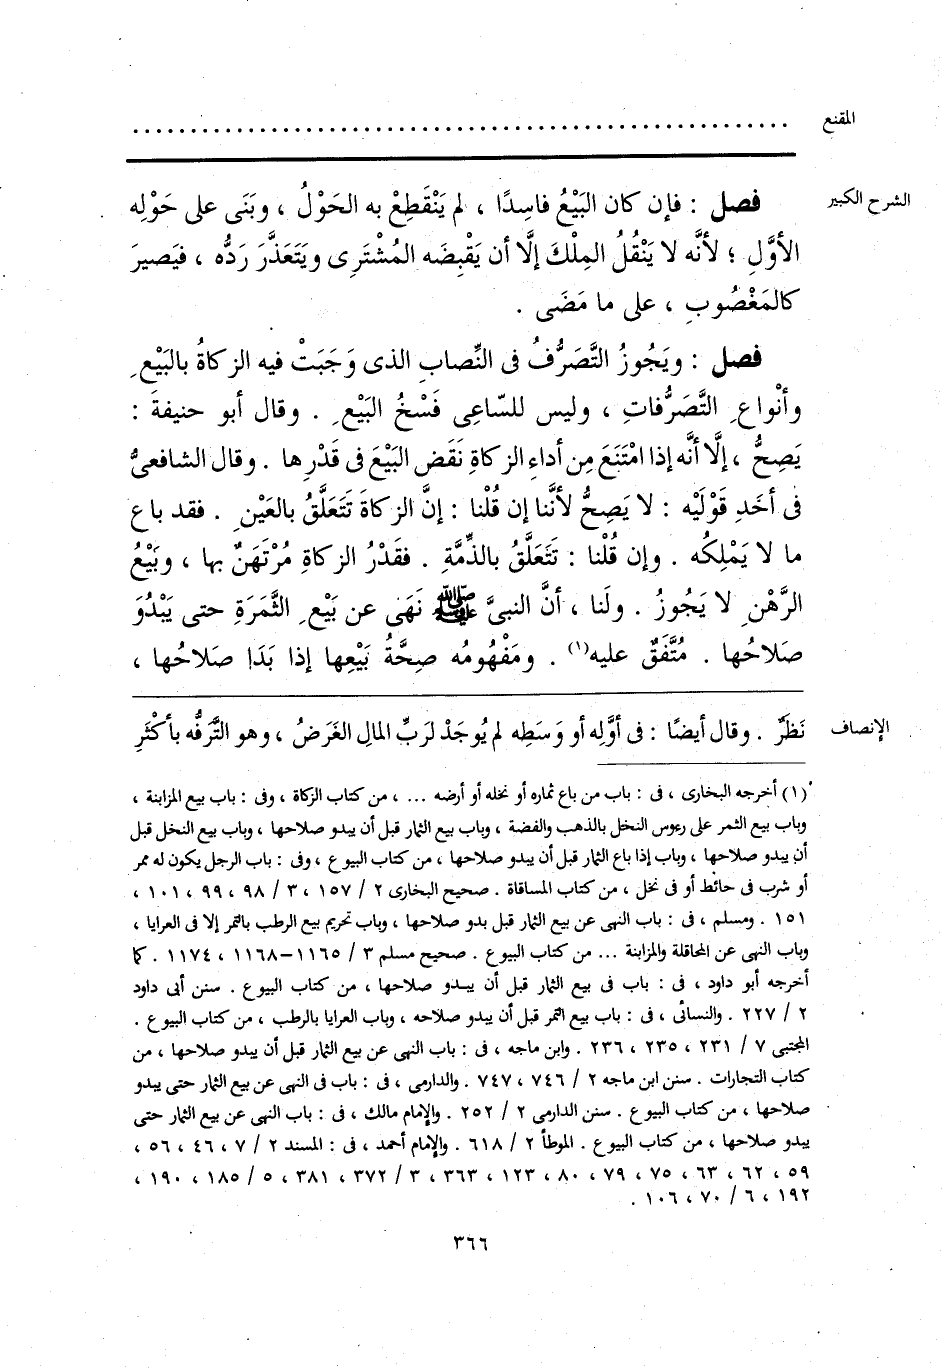 المقنع ........................................................
الشرح الكبير فصل : فإن كان البَيْعُ فاسِدًا ، لم يَنْقَطِعْ به الحَوْلُ ، وبَنَى على حَوْلِه
الأوَّلِ ؛ لأنَّه لا يَنْقُلُ المِلْكَ إلَّا أن يَقْبِضَه المُشْتَرِى ويَتَعَذَّرَ رَدُّه ، فيَصيرَ
كالمَغْصُوبِ ، على ما مَضَى .
فصل : ويَجُوزُ التَّصَرُّفُ فى النِّصابِ الذى وَجَبَتْ فيه الزكاةُ بالبَيْعِ
وأنْواعِ التَّصَرُّفاتِ ، وليس للسّاعِى فَسْخُ البَيْعِ . وقال أبو حنيفةَ :
يَصِحُّ ، إلَّا أنَّه إذا امْتَنَعَ مِن أداءِ الزكاةِ نَقَض البَيْعَ فى قَدْرِها . وقال الشافعىُّ
فى أحَدِ قَوْلَيْه : لا يَصِحُّ لأنَّنا إن قُلْنا : إنَّ الزكاةَ تَتَعَلَّقُ بالعَيْنِ . فقد باع
ما لا يَمْلِكُه . وإن قُلْنا : تَتَعَلَّقُ بالذِّمَّةِ . فقَدْرُ الزكاةِ مُرْتَهَنٌ بها ، وبَيْعُ
الرَّهْنِ لا يَجُوزُ . ولَنا ، أنَّ النبىَّ ﷺ نَهَى عن بَيْعِ الثَّمَرَةِ حتى يَبْدُوَ
صَلاحُها . مُتَّفَقٌ عليه(١) . ومَفْهُومُه صِحَّةُ بَيْعِها إذا بَدَا صَلاحُها ،
الإنصاف نَظَرٌ . وقال أيضًا : فى أوَّلِه أو وَسَطِه لم يُوجَدْ لرَبِّ المالِ الغَرَضُ ، وهو التَّرَفُّه بأكْثَرِ
(١) أخرجه البخارى ، فى : باب من باع ثماره أو نخله أو أرضه ... ، من كتاب الزكاة ، وفى : باب بيع المزابنة ،
وباب بيع الثمر على رءوس النخل بالذهب والفضة ، وباب بيع الثمار قبل أن يبدو صلاحها ، وباب بيع النخل قبل
أن يبدو صلاحها ، وباب إذا باع الثمار قبل أن يبدو صلاحها ، من كتاب البيوع ، وفى : باب الرجل يكون له ممر
أو شرب فى حائط أو فى نخل ، من كتاب المساقاة . صحيح البخارى ٢ / ١٥٧ ، ٣ / ٩٨ ، ٩٩ ، ١٠١ ،
١٥١ . ومسلم ، فى : باب النهى عن بيع الثمار قبل بدو صلاحها ، وباب تحريم بيع الرطب بالتمر إلا فى العرايا ،
وباب النهى عن المحاقلة والمزابنة ... من كتاب البيوع . صحيح مسلم ٣ / ١١٦٥–١١٦٨ ، ١١٧٤ . كما
أخرجه أبو داود ، فى : باب فى بيع الثمار قبل أن يبدو صلاحها ، من كتاب البيوع . سنن أبى داود
٢ / ٢٢٧ . والنسائى ، فى : باب بيع الثمر قبل أن يبدو صلاحه ، وباب العرايا بالرطب ، من كتاب البيوع .
المجتبى ٧ / ٢٣١ ، ٢٣٥ ، ٢٣٦ . وابن ماجه ، فى : باب النهى عن بيع الثمار قبل أن يبدو صلاحها ، من
كتاب التجارات . سنن ابن ماجه ٢ / ٧٤٦ ، ٧٤٧ . والدارمى ، فى : باب فى النهى عن بيع الثمار حتى يبدو
صلاحها ، من كتاب البيوع . سنن الدارمى ٢ / ٢٥٢ . والإمام مالك ، فى : باب النهى عن بيع الثمار حتى
يبدو صلاحها ، من كتاب البيوع . الموطأ ٢ / ٦١٨ . والإمام أحمد ، فى : المسند ٢ / ٧ ، ٤٦ ، ٥٦ ،
٥٩ ، ٦٢ ، ٦٣ ، ٧٥ ، ٧٩ ، ٨٠ ، ١٢٣ ، ٣٦٣ ، ٣ / ٣٧٢ ، ٣٨١ ، ٥ / ١٨٥ ، ١٩٠ ،
١٩٢ ، ٦ / ٧٠ ، ١٠٦ .
٣٦٦